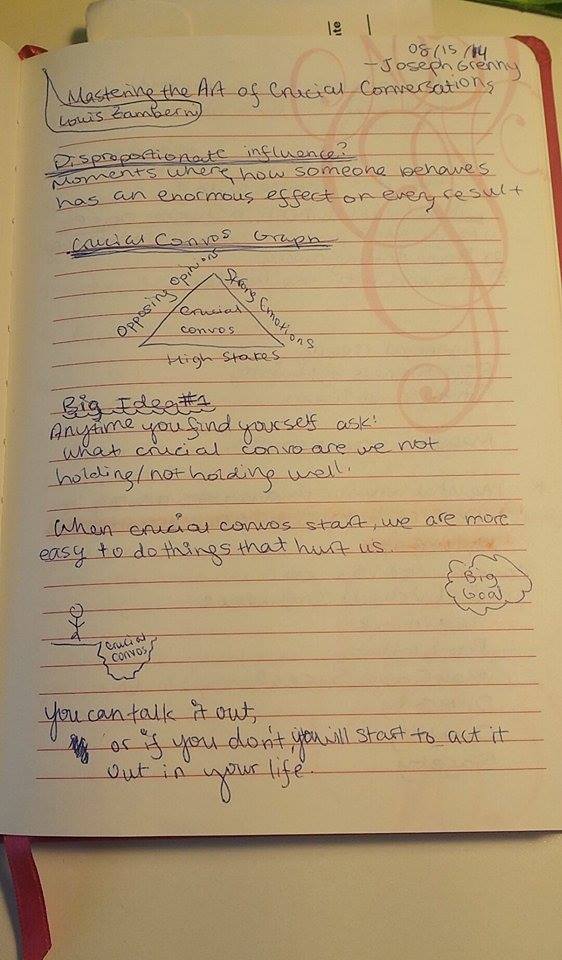 ite
08/15/14
- Joseph Grenny
Mastering the Art of Crucial Conversations
Louis Zamberni
Disproportionate influence?
Moments where, how someone behaves
has an enormous effect on every result
Crucial Convos Graph
Opposing Opinions
Strong Emotions
Crucial
convos
High Stakes
Big Idea #1
Anytime you find yourself ask:
what crucial convo are we not
holding/not holding well.
When crucial convos start, we are more
easy to do things that hurt us.
Big
Goal
crucial
convos
You can talk it out,
or if you don't, you will start to act it
out in your life.